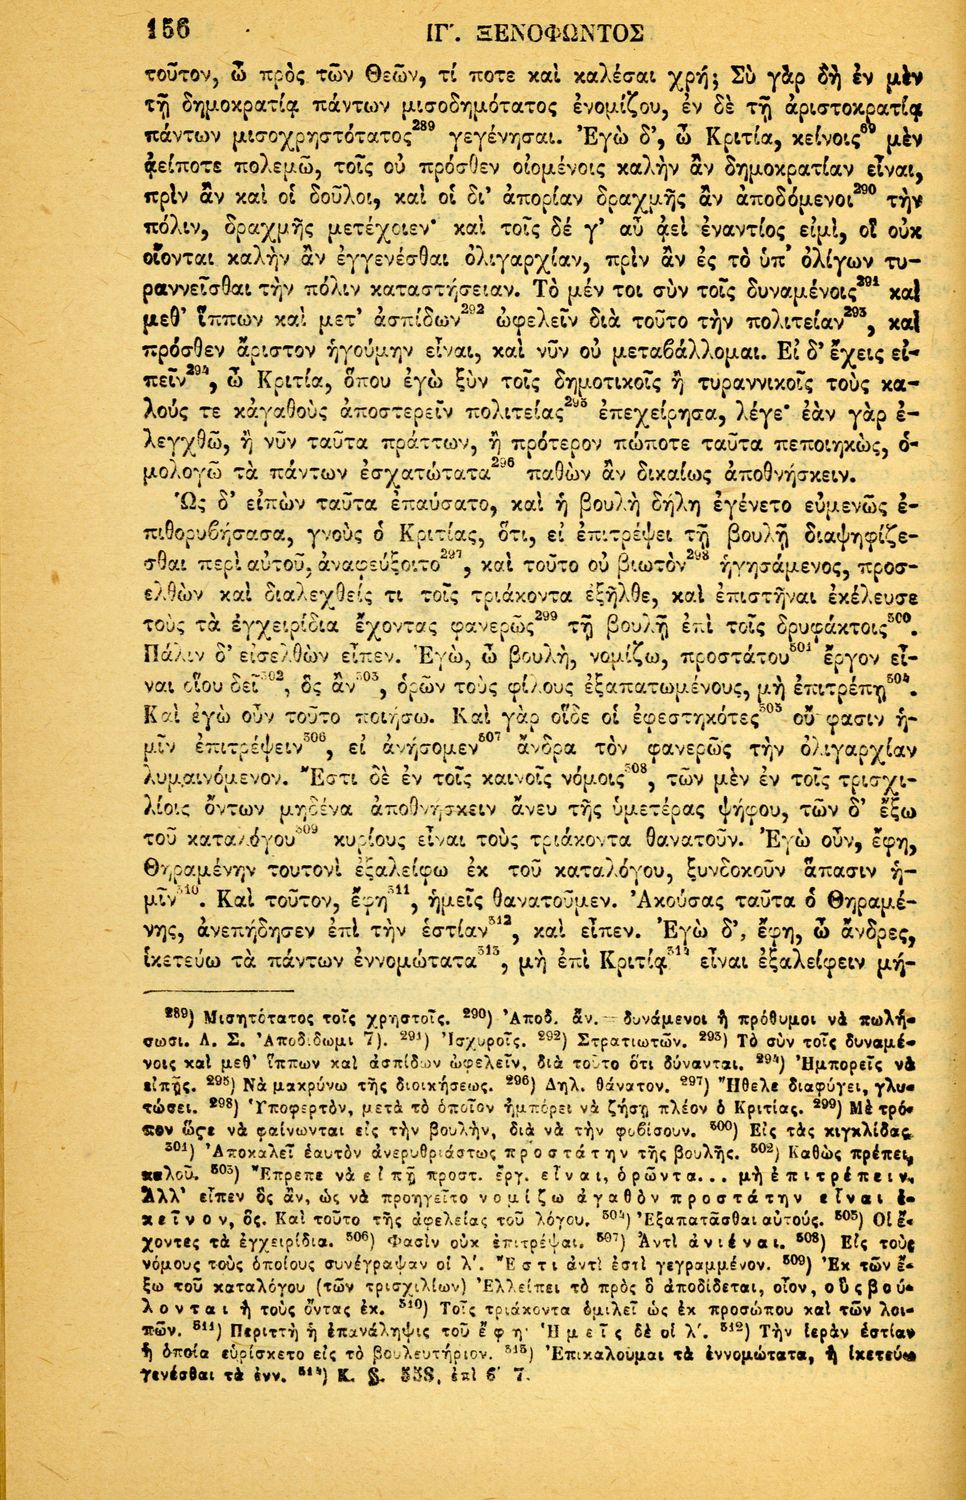 156 ΙΓʹ. ΞΕΝΟΦΩΝΤΟΣ
τοῦτον, ὦ πρὸς τῶν Θεῶν, τί ποτε καὶ καλέσαι χρή; Σὺ γὰρ δὴ ἐν μὲν
τῇ δημοκρατίᾳ πάντων μισοδημότατος ἐνομίζου, ἐν δὲ τῇ ἀριστοκρατίᾳ
πάντων μισοχρηστότατος²⁸⁹ γεγένησαι. Ἐγὼ δ', ὦ Κριτία, κείνοις⁶⁹ μὲν
ἀείποτε πολεμῶ, τοῖς οὐ πρόσθεν οἰομένοις καλὴν ἂν δημοκρατίαν εἶναι,
πρὶν ἂν καὶ οἱ δοῦλοι, καὶ οἱ δι' ἀπορίαν δραχμῆς ἂν ἀποδόμενοι²⁹⁰ τὴν
πόλιν, δραχμῆς μετέχοιεν· καὶ τοῖς δέ γ' αὖ ἀεὶ ἐναντίος εἰμὶ, οἳ οὐκ
οἴονται καλὴν ἂν ἐγγενέσθαι ὀλιγαρχίαν, πρὶν ἂν ἐς τὸ ὑπ' ὀλίγων τυ-
ραννεῖσθαι τὴν πόλιν καταστήσειαν. Τὸ μέν τοι σὺν τοῖς δυναμένοις²⁹¹ καὶ
μεθ' ἵππων καὶ μετ' ἀσπίδων²⁹² ὠφελεῖν διὰ τοῦτο τὴν πολιτείαν²⁹³, καὶ
πρόσθεν ἄριστον ἡγούμην εἶναι, καὶ νῦν οὐ μεταβάλλομαι. Εἰ δ' ἔχεις εἰ-
πεῖν²⁹⁴, ὦ Κριτία, ὅπου ἐγὼ ξὺν τοῖς δημοτικοῖς ἢ τυραννικοῖς τοὺς κα-
λούς τε κἀγαθοὺς ἀποστερεῖν πολιτείας²⁹⁵ ἐπεχείρησα, λέγε· ἐὰν γὰρ ἐ-
λεγχθῶ, ἢ νῦν ταῦτα πράττων, ἢ πρότερον πώποτε ταῦτα πεποιηκὼς, ὁ-
μολογῶ τὰ πάντων ἐσχατώτατα²⁹⁶ παθὼν ἂν δικαίως ἀποθνήσκειν.
Ὡς δ' εἰπὼν ταῦτα ἐπαύσατο, καὶ ἡ βουλὴ δήλη ἐγένετο εὐμενῶς ἐ-
πιθορυβήσασα, γνοὺς ὁ Κριτίας, ὅτι, εἰ ἐπιτρέψει τῇ βουλῇ διαψηφίζε-
σθαι περὶ αὐτοῦ, ἀναφεύξοιτο²⁹⁷, καὶ τοῦτο οὐ βιωτὸν²⁹⁸ ἡγησάμενος, προσ-
ελθὼν καὶ διαλεχθείς τι τοῖς τριάκοντα ἐξῆλθε, καὶ ἐπιστῆναι ἐκέλευσε
τοὺς τὰ ἐγχειρίδια ἔχοντας φανερῶς²⁹⁹ τῇ βουλῇ ἐπὶ τοῖς δρυφάκτοις³⁰⁰.
Πάλιν δ' εἰσελθὼν εἶπεν. Ἐγὼ, ὦ βουλὴ, νομίζω, προστάτου³⁰¹ ἔργον εἶ-
ναι οἵου δεῖ³⁰², ὃς ἂν³⁰³, ὁρῶν τοὺς φίλους ἐξαπατωμένους, μὴ ἐπιτρέπῃ³⁰⁴.
Καὶ ἐγὼ οὖν τοῦτο ποιήσω. Καὶ γὰρ οἵδε οἱ ἐφεστηκότες³⁰⁵ οὔ φασιν ἡ-
μῖν ἐπιτρέψειν³⁰⁶, εἰ ἀνήσομεν⁵⁰⁷ ἄνδρα τὸν φανερῶς τὴν ὀλιγαρχίαν
λυμαινόμενον. Ἔστι δὲ ἐν τοῖς καινοῖς νόμοις³⁰⁸, τῶν μὲν ἐν τοῖς τρισχι-
λίοις ὄντων μηδένα ἀποθνήσκειν ἄνευ τῆς ὑμετέρας ψήφου, τῶν δ' ἔξω
τοῦ καταλόγου³⁰⁹ κυρίους εἶναι τοὺς τριάκοντα θανατοῦν. Ἐγὼ οὖν, ἔφη,
Θηραμένην τουτονὶ ἐξαλείφω ἐκ τοῦ καταλόγου, ξυνδοκοῦν ἅπασιν ἡ-
μῖν³¹⁰. Καὶ τοῦτον, ἔφη³¹¹, ἡμεῖς θανατοῦμεν. Ἀκούσας ταῦτα ὁ Θηραμέ-
νης, ἀνεπήδησεν ἐπὶ τὴν ἑστίαν³¹², καὶ εἶπεν. Ἐγὼ δ', ἔφη, ὦ ἄνδρες,
ἱκετεύω τὰ πάντων ἐννομώτατα³¹³, μὴ ἐπὶ Κριτίᾳ³¹⁴ εἶναι ἐξαλείφειν μή-
²⁸⁹) Μισητότατος τοῖς χρηστοῖς. ²⁹⁰) Ἀποδ. ἄν.— δυνάμενοι ἢ πρόθυμοι νὰ πωλή-
σωσι. Λ. Σ. Ἀποδίδωμι 7). ²⁹¹) Ἰσχυροῖς. ²⁹²) Στρατιωτῶν. ²⁹³) Τὸ σὺν τοῖς δυναμέ-
νοις καὶ μεθ' ἵππων καὶ ἀσπίδων ὠφελεῖν, διὰ τοῦτο ὅτι δύνανται. ²⁹⁴) Ἠμπορεῖς νὰ
εἰπῇς. ²⁹⁵) Νὰ μακρύνω τῆς διοικήσεως. ²⁹⁶) Δηλ. θάνατον. ²⁹⁷) Ἤθελε διαφύγει, γλυ-
τώσει. ²⁹⁸) Ὑποφερτὸν, μετὰ τὸ ὁποῖον ἠμπόρει νὰ ζήσῃ πλέον ὁ Κριτίας. ²⁹⁹) Μὲ τρό-
πον ὥςε νὰ φαίνωνται εἰς τὴν βουλὴν, διὰ νὰ τὴν φοβίσουν. ³⁰⁰) Εἰς τὰς κιγκλίδας.
³⁰¹) Ἀποκαλεῖ ἑαυτὸν ἀνερυθριάστως προστάτην τῆς βουλῆς. ³⁰²) Καθὼς πρέπει,
καλοῦ. ³⁰³) Ἔπρεπε νὰ εἰπῇ προστ. ἔργ. εἶναι, ὁρῶντα... μὴ ἐπιτρέπειν.
Ἀλλ' εἶπεν ὃς ἂν, ὡς νὰ προηγεῖτο νομίζω ἀγαθὸν προστάτην εἶναι ἐ-
κεῖνον, ὅς. Καὶ τοῦτο τῆς ἀφελείας τοῦ λόγου. ³⁰⁴) Ἐξαπατᾶσθαι αὐτούς. ³⁰⁵) Οἱ ἔ-
χοντες τὰ ἐγχειρίδια. ³⁰⁶) Φασὶν οὐκ ἐπιτρέψαι. ⁵⁰⁷) Ἀντὶ ἀνιέναι. ³⁰⁸) Εἰς τοὺς
νόμους τοὺς ὁποίους συνέγραψαν οἱ λʹ. Ἔστι ἀντὶ ἐστὶ γεγραμμένον. ³⁰⁹) Ἐκ τῶν ἔ-
ξω τοῦ καταλόγου (τῶν τρισχιλίων) Ἐλλείπει τὸ πρὸς ὃ ἀποδίδεται, οἷον, οὓς βού-
λονται ἢ τοὺς ὄντας ἐκ. ³¹⁰) Τοῖς τριάκοντα ὁμιλεῖ ὡς ἐκ προσώπου καὶ τῶν λοι-
πῶν. ³¹¹) Περιττὴ ἡ ἐπανάληψις τοῦ ἔφη· Ἡμεῖς δὲ οἱ λʹ. ³¹²) Τὴν ἱερὰν ἑστίαν
ἡ ὁποία εὑρίσκετο εἰς τὸ βουλευτήριον. ³¹³) Ἐπικαλοῦμαι τὰ ἐννομώτατα, ἢ ἱκετεύω
γενέσθαι τὰ ἐνν. ³¹⁴) Κ. §. 338, ἐπὶ βʹ 7.